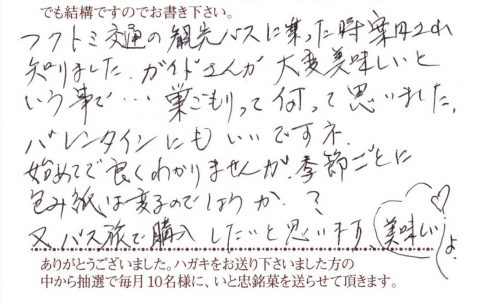 でも結構ですのでお書き下さい。
フクトミ交通の観光バスに乗った時案内され
知りました。ガイドさんが大変美味しいと
いう事で…巣ごもりって何って思いました。
バレンタインにもいいですネ。
始めてで良くわかりませんが、季節ごとに
包み紙は変るのでしょうか。?
又、バス旅で購入したいと思います。美味しいよ♡
ありがとうございました。ハガキをお送り下さいました方の
中から抽選で毎月10名様に、いと忠銘菓を送らせて頂きます。